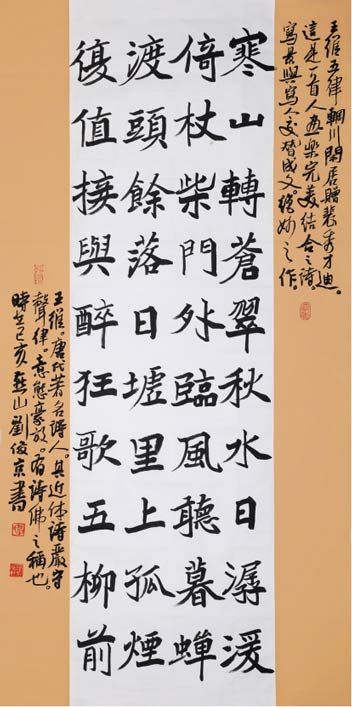 王維五律輞川閑居贈裴秀才迪。
這是一首人畫樂完美結合之詩。
寫景與寫人交替成文。絕妙之作。
寒山轉蒼翠秋水日潺湲
倚杖柴門外臨風聽暮蟬
渡頭餘落日墟里上孤煙
復值接與醉狂歌五柳前
王維。唐代著名詩人。其近体詩嚴守
聲律。意態豪放。有詩佛之稱也。
己亥燕山劉俊京書